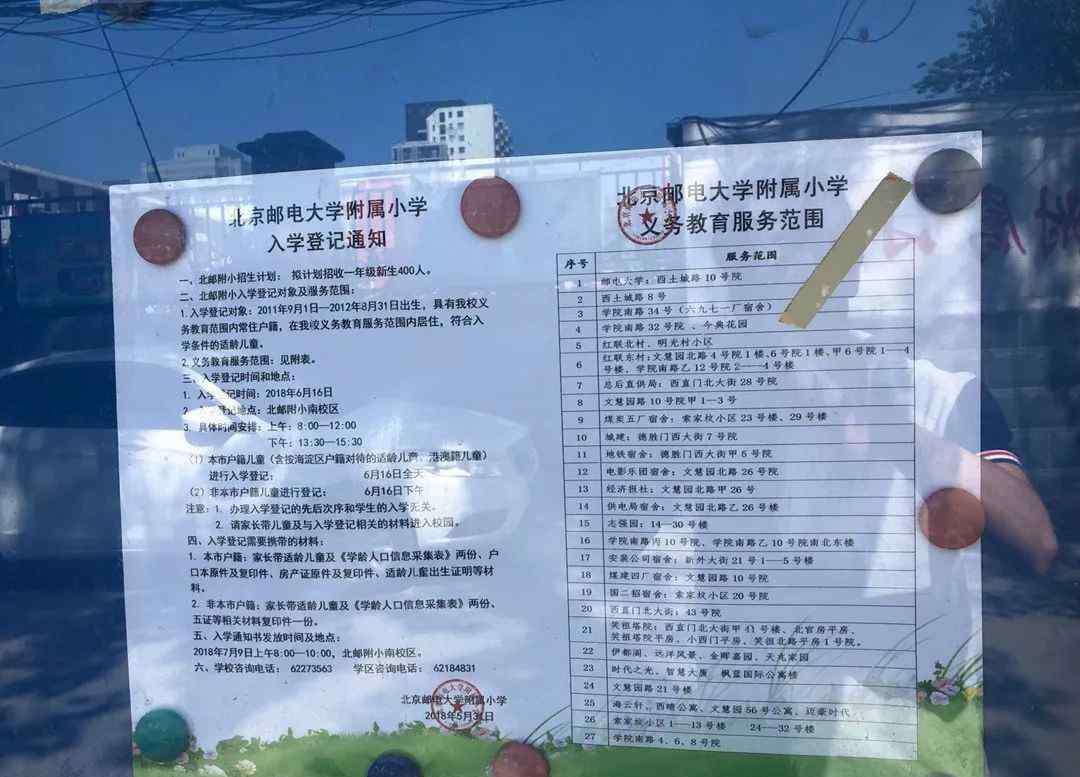 北京邮电大学附属小学
入学登记通知
一、北邮附小招生计划： 拟计划招收一年级新生400人。
二、北邮附小入学登记对象及服务范围：
1.入学登记对象：2011年9月1日—2012年8月31日出生，具有我校义
务教育范围内常住户籍，在我校义务教育服务范围内居住，符合入
学条件的适龄儿童。
2.义务教育服务范围：见附表。
三、入学登记时间和地点：
1. 入学登记时间：2018年6月16日
2. 登记地点：北邮附小南校区
3. 具体时间安排：上午：8:00—12:00
下午：13:30—15:30
（1）本市户籍儿童（含按海淀区户籍对待的适龄儿童、港澳籍儿童）
进行入学登记： 6月16日全天
（2）非本市户籍儿童进行登记： 6月16日下午
注意：1. 办理入学登记的先后次序和学生的入学无关。
2. 请家长带儿童及与入学登记相关的材料进入校园。
四、入学登记需要携带的材料：
1. 本市户籍：家长带适龄儿童及《学龄人口信息采集表》两份、户
口本原件及复印件、房产证原件及复印件、适龄儿童出生证明等材
料。
2. 非本市户籍：家长带适龄儿童及《学龄人口信息采集表》两份、
五证等相关材料复印件一份。
五、入学通知书发放时间及地点：
2018年7月9日上午8:00—10:00，北邮附小南校区。
六、学校咨询电话： 62273563 学区咨询电话： 62184831
北京邮电大学附属小学
2018年5月31日
北京邮电大学附属小学
义务教育服务范围
序号 服务范围
1 邮电大学：西土城路10号院
2 西土城路8号
3 学院南路34号（六九七一厂宿舍）
4 学院南路32号院 、今典花园
5 红联北村、明光村小区
6 红联东村：文慧园北路4号院1楼、6号院1楼、甲6号院1—4
号楼、学院南路乙12号院2——4号楼
7 总后直供局：西直门北大街28号院
8 文慧园路10号院甲1—3号
9 煤炭五厂宿舍：索家坟小区23号楼、29号楼
10 城建：德胜门西大街7号院
11 地铁宿舍：德胜门西大街甲6号院
12 电影乐团宿舍：文慧园北路26号院
13 经济报社：文慧园北路甲26号
14 供电局宿舍：文慧园北路乙26号
15 志强园：14—30号楼
16 学院南路丙10号院、学院南路乙10号院南北东楼
17 安装公司宿舍：新外大街21号1—5号楼
18 煤建四厂宿舍：文慧园路10号院
19 国二招宿舍：索家坟小区20号院
20 西直门北大街：43号院
21 笑祖塔院：西直门北大街甲41号楼、北官房平房、
笑祖塔院平房、小西门平房、笑祖北路平房1号院。
22 伊都阁、远洋风景、金晖嘉园、天兆家园
23 时代之光、智慧大厦 枫蓝国际公寓楼
24 文慧园路21号楼
25 海云轩、西晴公寓、文慧园56号公寓、迈豪时代
26 索家坟小区1—13号楼 24—32号楼
27 学院南路4、6、8号院